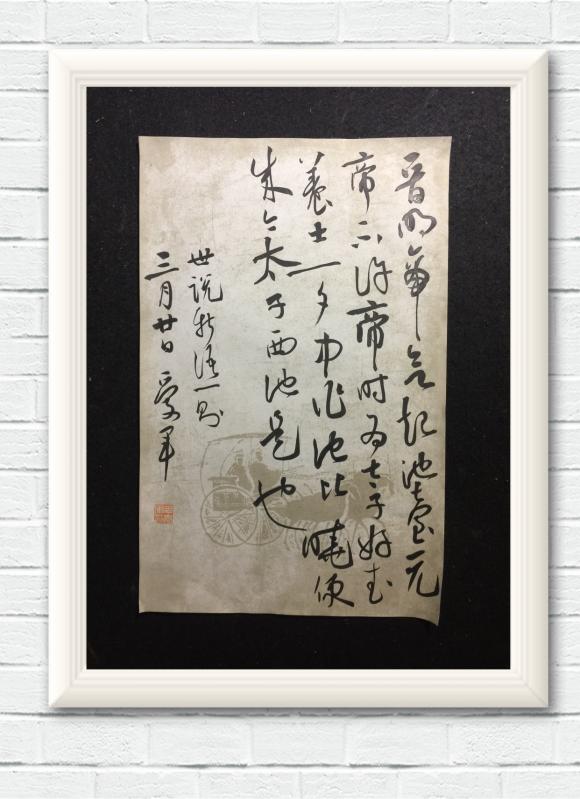 晋明帝欲起池臺元
帝不许帝时为太子好武
養士一夕中作池比曉便
成今太子西池是也
世说新语一则
三月廿日